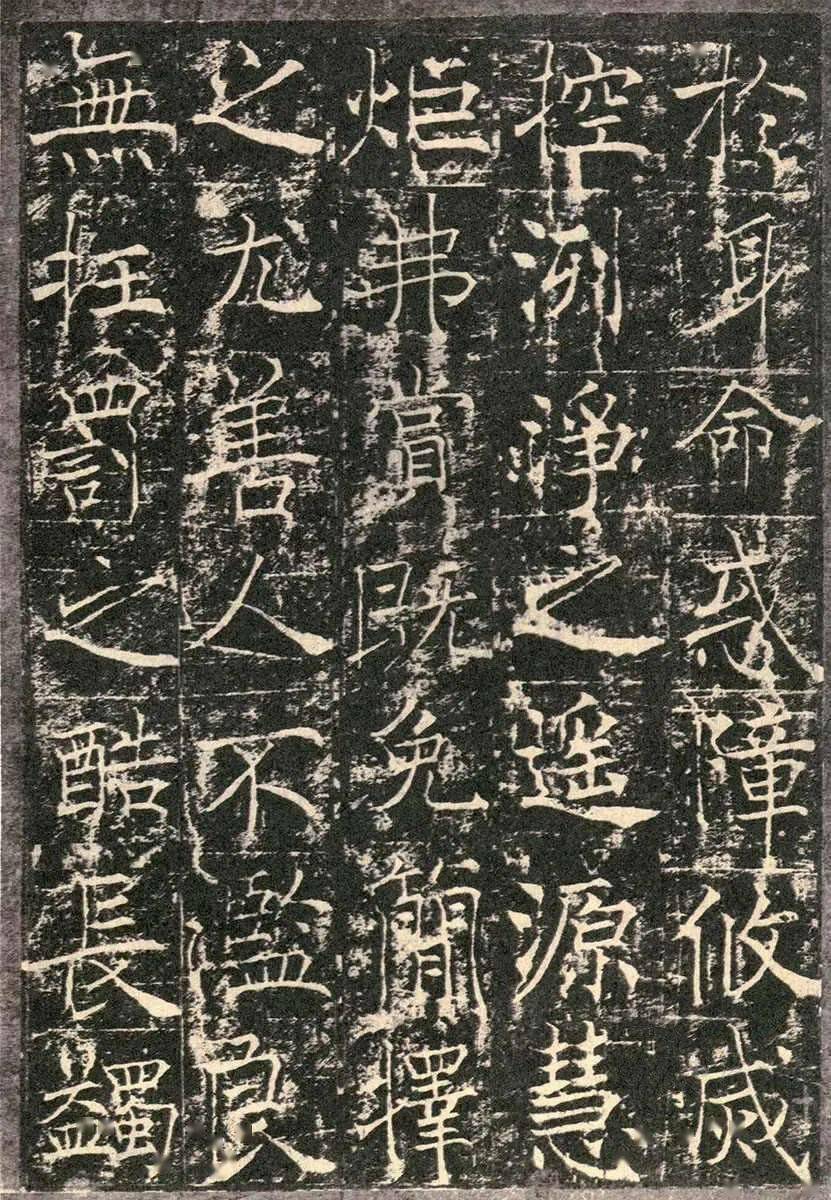 扵身命惑障攸滅
控洌淨之遥源慧
炬弗賞既免簡擇
之尤善人不濫良
無枉罰之酷長蠲